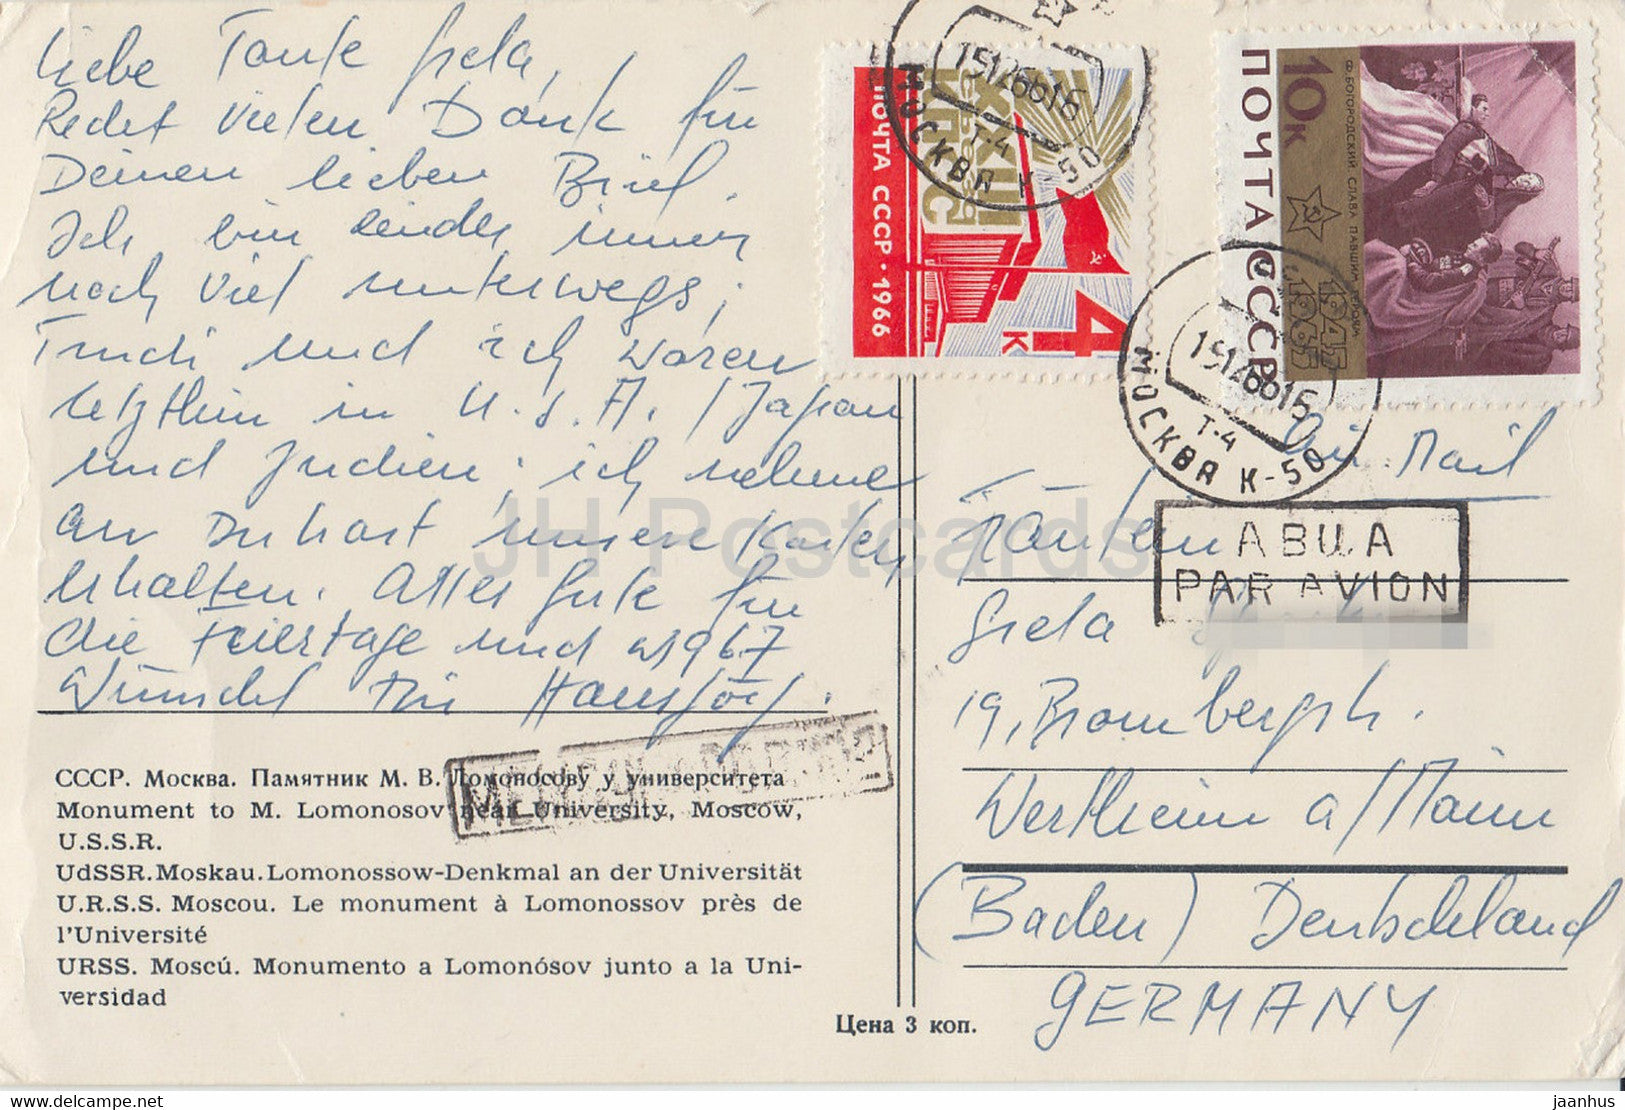 Liebe Tante Greta,
Recht vielen Dank für
Deinen lieben Brief.
Ich bin leider immer
noch viel unterwegs;
Trudi und ich waren
letzthin in U.S.A./Japan
und Indien; ich nehme
an Du hast unsere Karten
erhalten. Alles Gute für
die Feiertage und 1967
Wünscht Dir Hansjörg.
СССР. Москва. Памятник М. В. Ломоносову у университета
Monument to M. Lomonosov near University, Moscow,
U.S.S.R.
UdSSR. Moskau. Lomonossow-Denkmal an der Universität
U.R.S.S. Moscou. Le monument à Lomonossov près de
l'Université
URSS. Moscú. Monumento a Lomonósov junto a la Uni-
versidad
Цена 3 коп.
ПОЧТА СССР·1966
XXIII
СЪЕЗД
КПСС
4 К
МОСКВА К-50
Т-4
ПОЧТА СССР
10 К
Ф. БОГОРОДСКИЙ СЛАВА ПАВШИМ ГЕРОЯМ
1945
1965
МОСКВА К-50
Т-4
Air Mail
Fräulein
АВИА
PAR AVION
Greta
19, Brombergstr.
Wertheim a/Main
(Baden) Deutschland
GERMANY
JH Postcards
delcampe.net
jaanhus